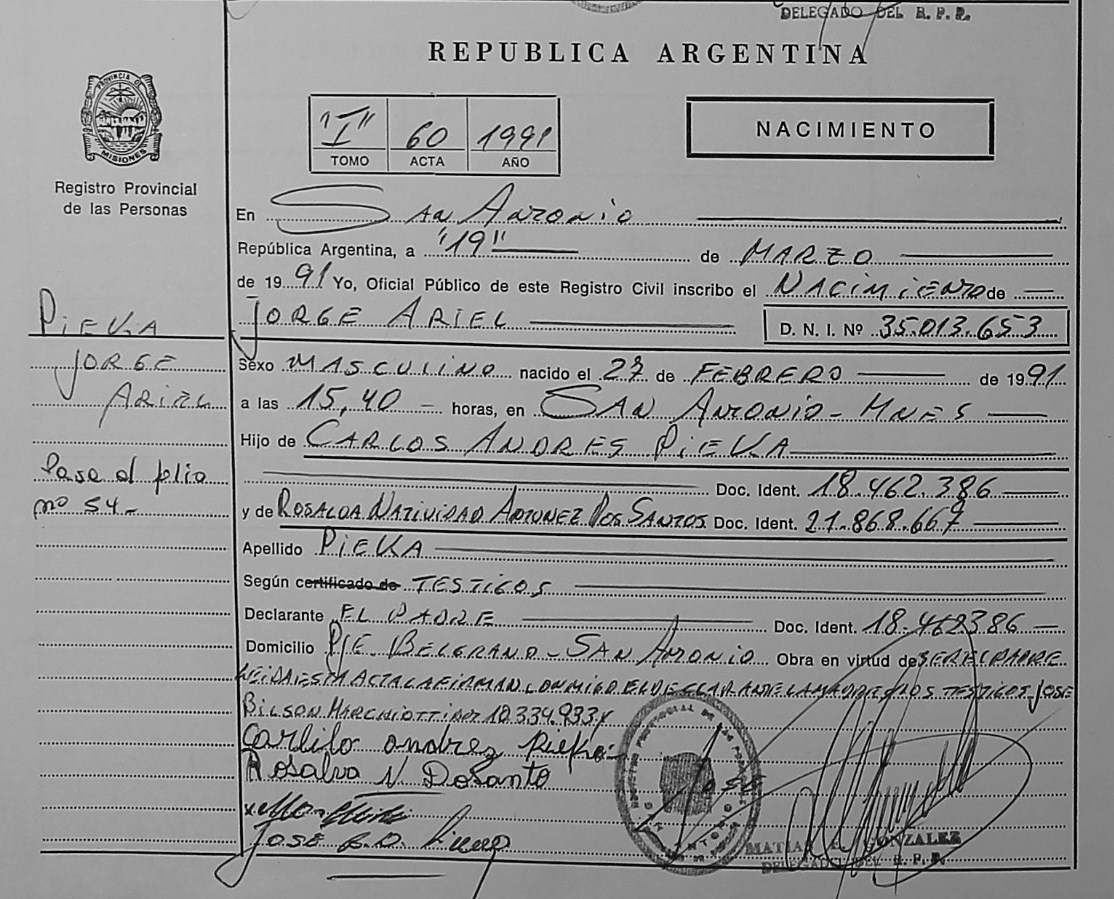 DELEGADO DEL R. P. P.
REPUBLICA ARGENTINA
PROVINCIA DE
MISIONES
Registro Provincial
de las Personas
"I" 60 1991
TOMO ACTA AÑO
NACIMIENTO
En San Antonio
República Argentina, a "19" de MARZO
de 1991 Yo, Oficial Público de este Registro Civil inscribo el NACIMIENTO de
JORGE ARIEL D. N. I. Nº 35.013.653
PIEKA
JORGE
ARIEL
Sexo MASCULINO nacido el 27 de FEBRERO de 1991
a las 15,40 horas, en SAN ANTONIO - MNES
Hijo de CARLOS ANDRES PIEKA
Pasa al folio
nº 54-
Doc. Ident. 18.462.386
y de ROSALVA NATIVIDAD ANTUNEZ DOS SANTOS Doc. Ident. 21.868.667
Apellido PIEKA
Según certificado de TESTIGOS
Declarante EL PADRE Doc. Ident. 18.462386
Domicilio PJE BELGRANO - SAN ANTONIO Obra en virtud de SER EL PADRE
LEIDA ESTA ACTA LA FIRMAN CONMIGO EL DECLARANTE LA MADRE Y LOS TESTIGOS JOSE
BILSON MARCHIOTTI 10.334.933 Y
Carlito andrez
Rosalva N DoSanto
JOSE
GONZALEZ
DELEGADO DEL R. P. P.